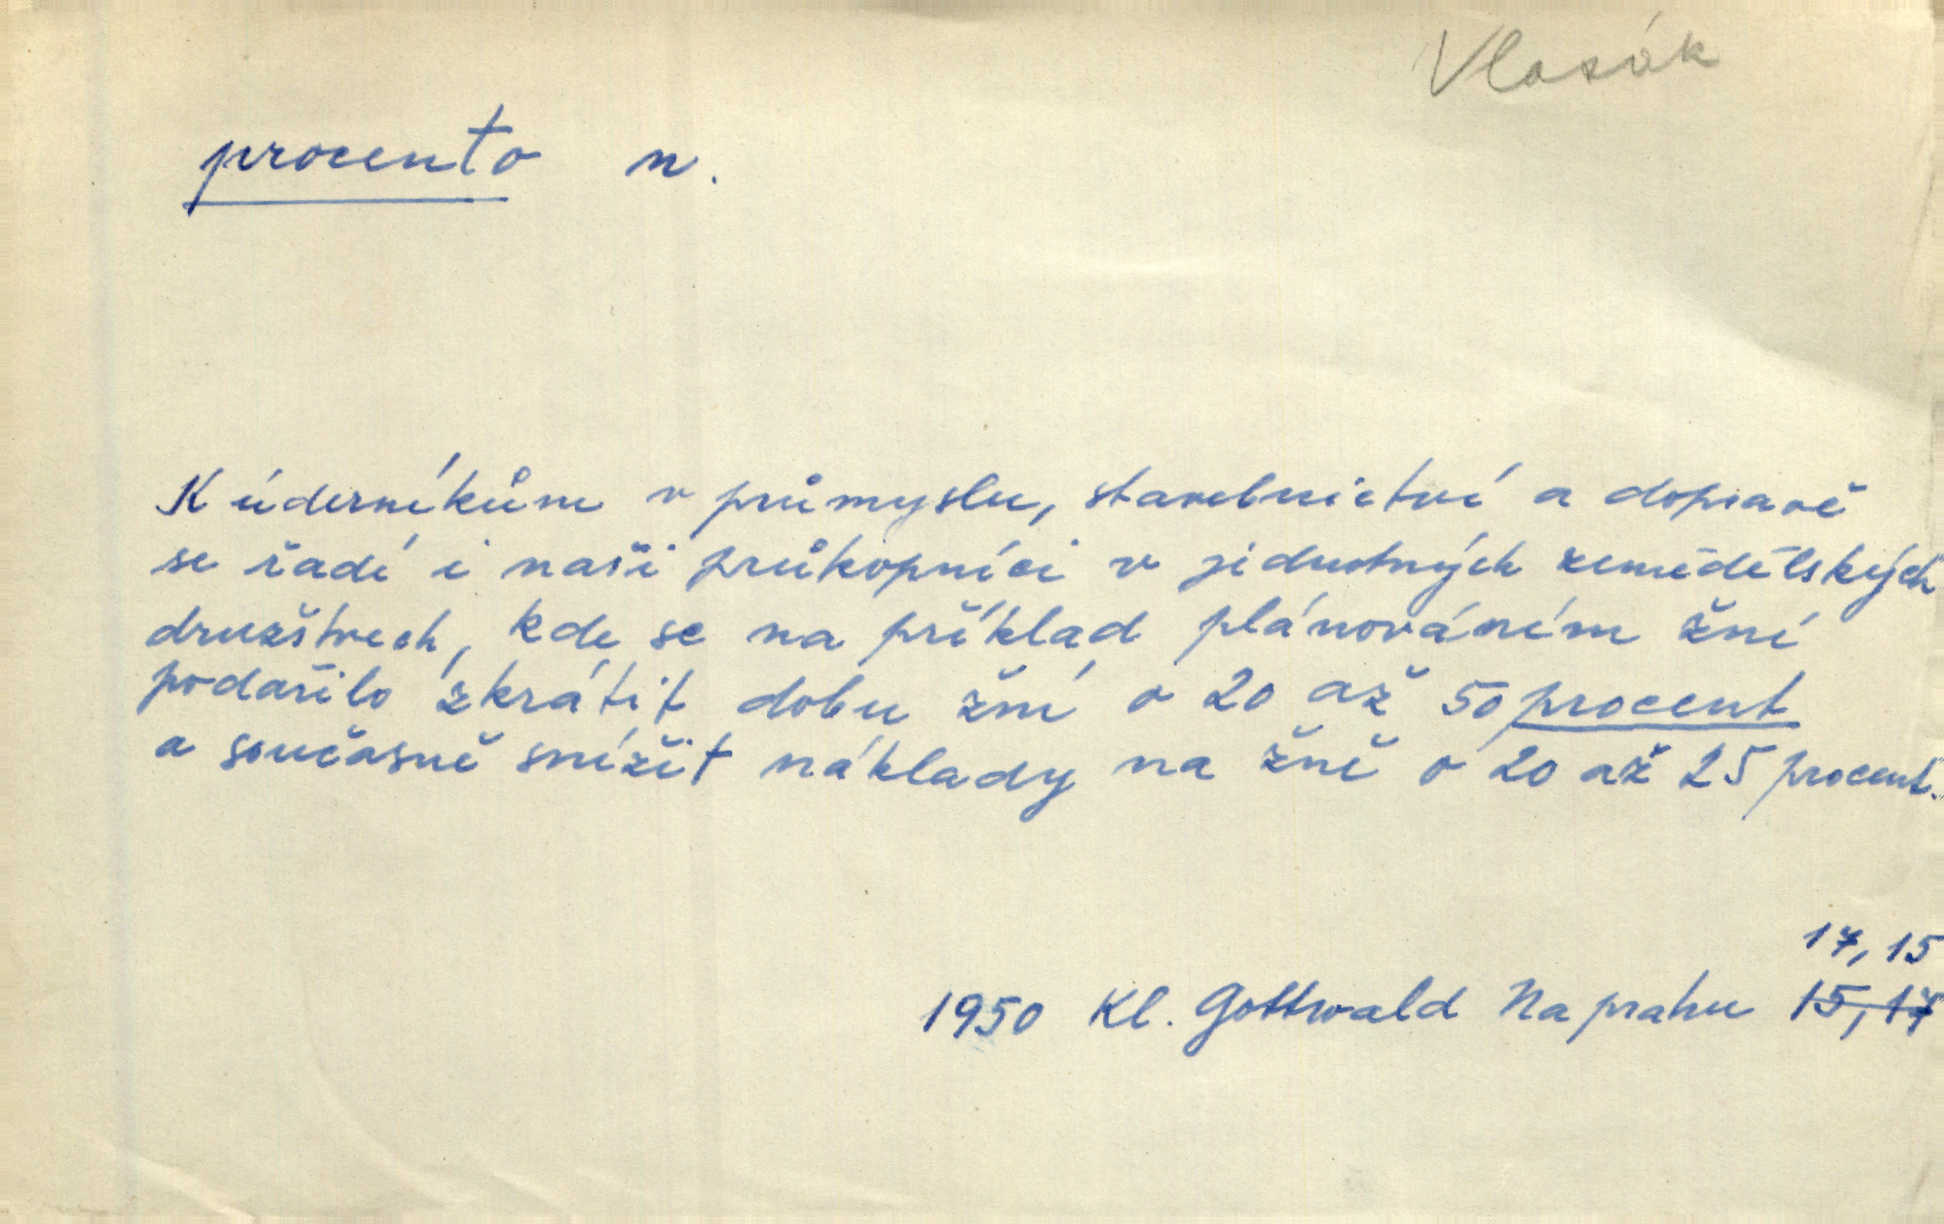 Vlasák
procento n.
K úderníkům v průmyslu, stavebnictví a dopravě
se řadí i naši průkopníci v jednotných zemědělských
družstvech, kde se na příklad plánováním žní
podařilo zkrátit dobu žní o 20 až 50 procent
a současně snížit náklady na žně o 20 až 25 procent.
17, 15
1950 Kl. Gottwald Na prahu 15, 17